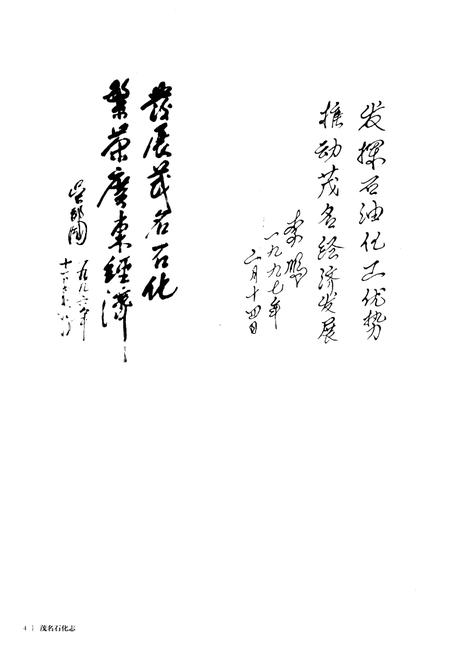 发挥石油化工优势
推动茂名经济发展
李鹏
一九九七年
二月十四日
發展茂名石化
繁荣廣東經濟
吴邦国
一九九六年
4 | 茂名石化志